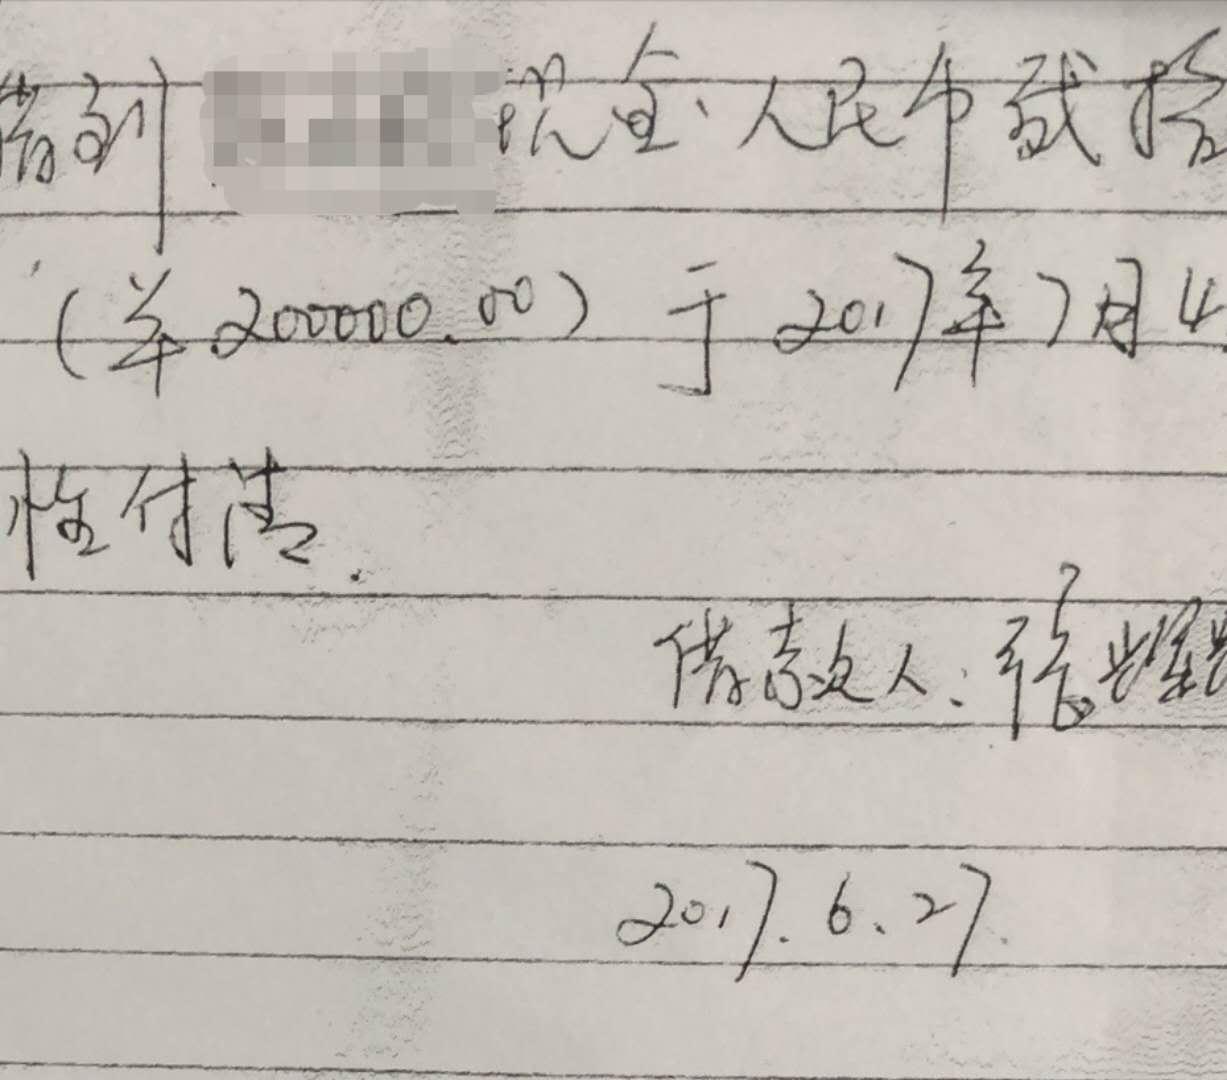 借到 现金.人民币贰拾
(¥200000.00)于2017年7月4
付清.
借款人:张
2017.6.27.